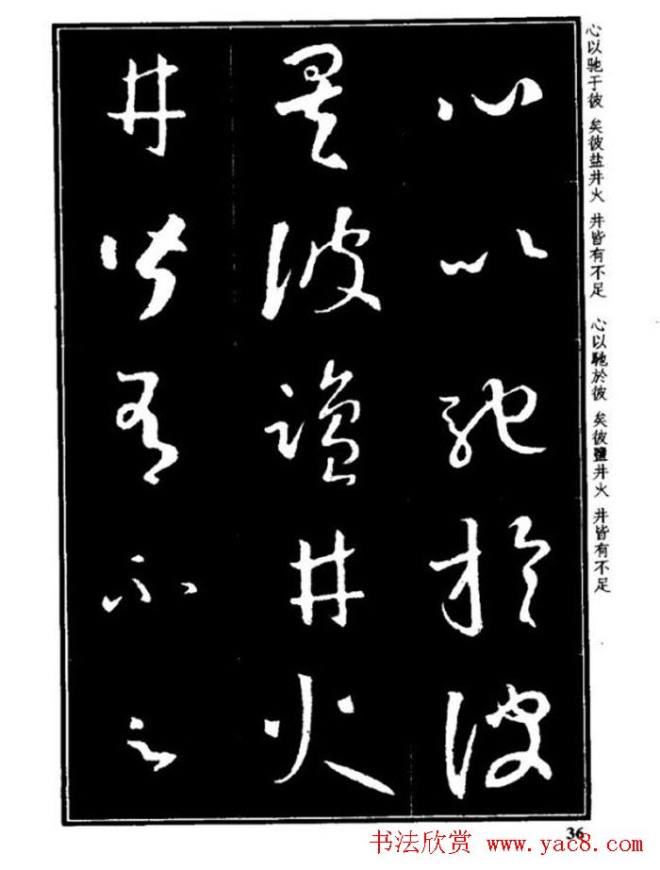 心以馳於彼
矣彼鹽井火
井皆有不足
心以驰于彼 矣彼盐井火 井皆有不足 心以馳於彼 矣彼鹽井火 井皆有不足
36
书法欣赏 www.yac8.com